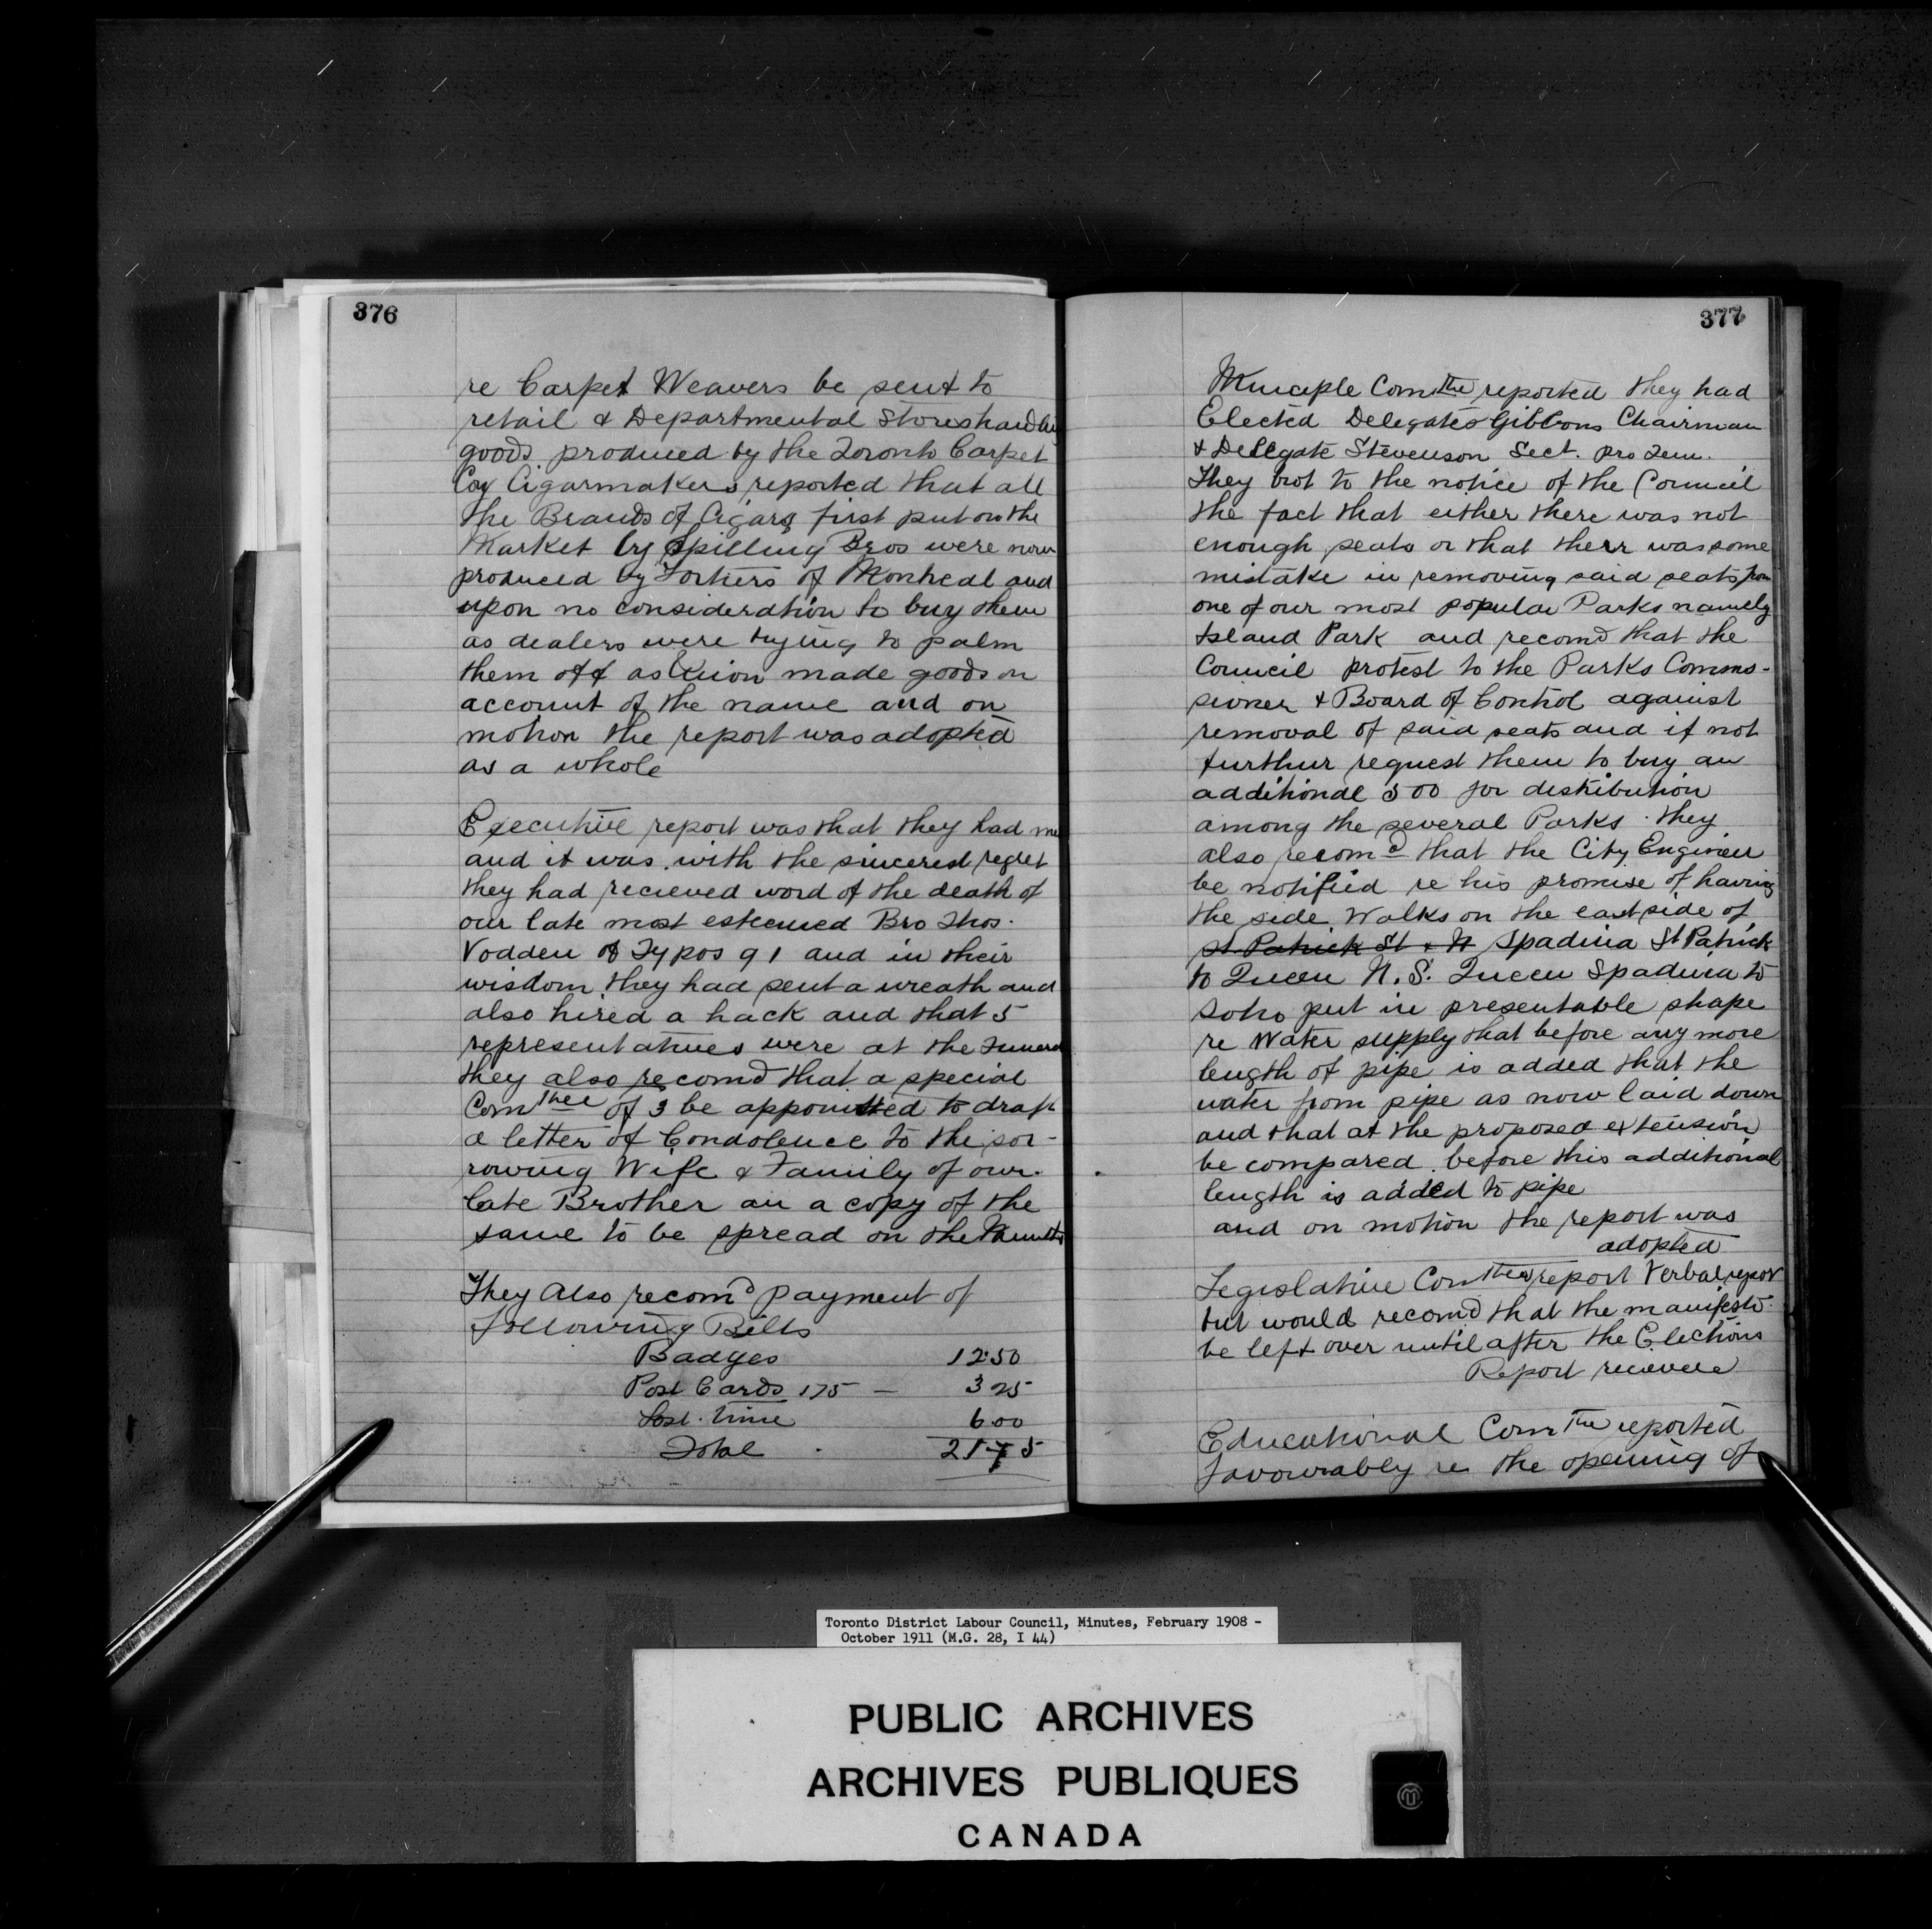 376
re Carpet Weavers be sent to
retail & Departmental Stores
goods produced by the Toronto Carpet
Coy Cigarmakers reported that all
the Brands of Cigars first put on the
Market by Spilling Bros were now
produced by Fortiers of Montreal and
upon no consideration to buy them
as dealers were trying to palm
them off as Union made goods on
account of the name and on
motion the report was adopted
as a whole
Executive report was that they had
and it was with the sincerest regret
they had recieved word of the death of
our late most esteemed Bro Thos.
Vodden of Typos 91 and in their
wisdom they had sent a wreath and
also hired a hack and that 5
representatives were at the
they also recomd that a special
Comthee of 3 be appointted to draft
a letter of Condolence to the sor-
rowing Wife & Family of our
late Brother an a copy of the
same to be spread on the
They Also recomd payment of
following Bills
Badges 12.50
Post Cards 175 — 325
Lost time 600
Total 2175
377
Municiple Comthe reported they had
Elected Delegates Gibbons Chairman
& Delegate Stevenson Sect. pro Tem.
They brot to the notice of the Council
the fact that either there was not
enough seats or that therr was some
mistake in removing said seats from
one of our most popular Parks namely
Island Park and recomd that the
Council protest to the Parks Comms-
sioner & Board of Control against
removal of said seats and if not
furthur request them to buy an
additional 500 for distribution
among the several Parks. they
also recomd that the City Engineer
be notified re his promise of having
the side Walks on the east side of
St Patrick St & N Spadina St Patrick
to Queen N.S. Queen Spadina to
Soho put in presentable shape
re Water supply that before any more
length of pipe is added that the
water from pipe as now laid down
and that at the proposed extension
be compared before this additional
length is added to pipe
and on motion the report was
adopted
Legislative Comthee report Verbal report
but would recomd that the manifesto
be left over until after the Elections
Report
Educational Comthe reported
favourably re the opening of
Toronto District Labour Council, Minutes, February 1908 -
October 1911 (M.G. 28, I 44)
PUBLIC ARCHIVES
ARCHIVES PUBLIQUES
CANADA